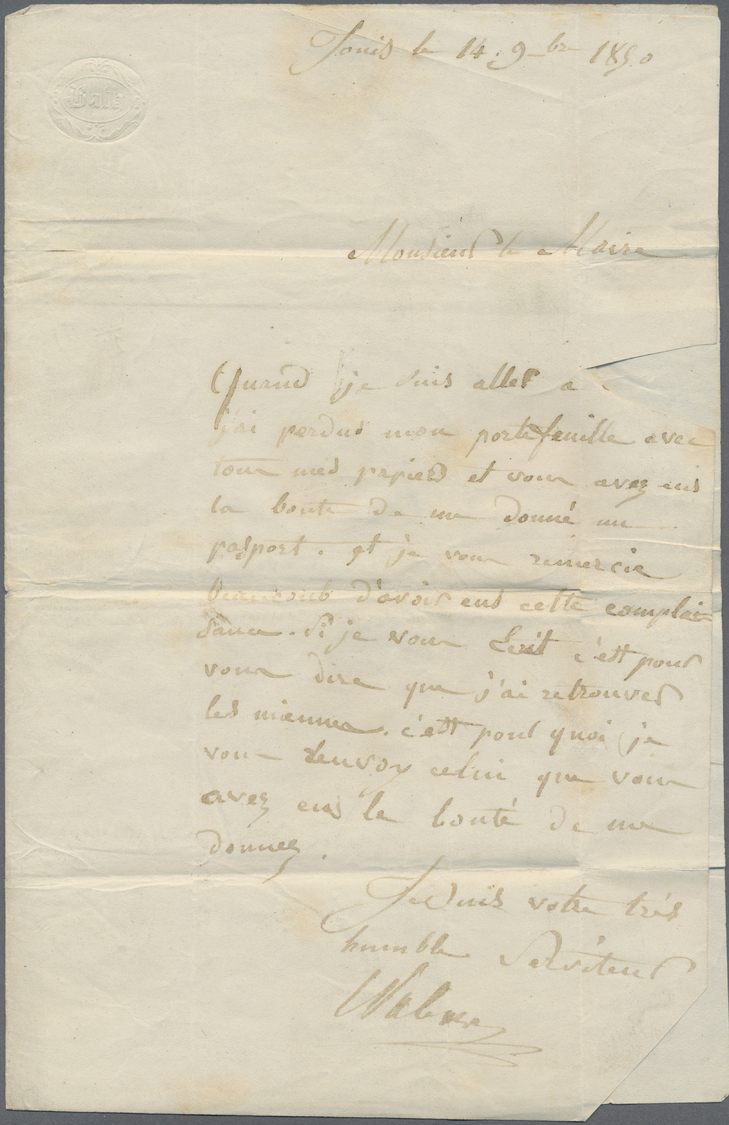 Bath
le 14 9bre 1850
Monsieur le Maire
Quand je suis aller a
j'ai perdus mon portefeuille avec
tour mes papiers et vour avez eus
la bonte de me donné un
pasport. et je vour remercie
beaucoub d'avoir eus cette complai-
sance. Si je vour Ecrit c'est pour
vour dire que j'ai retrouver
les miennes. c'est pour quoi je
vour renvoy celui que vour
avez eus la bonté de me
donnez.
Je Suis votre très
humble Serviteur